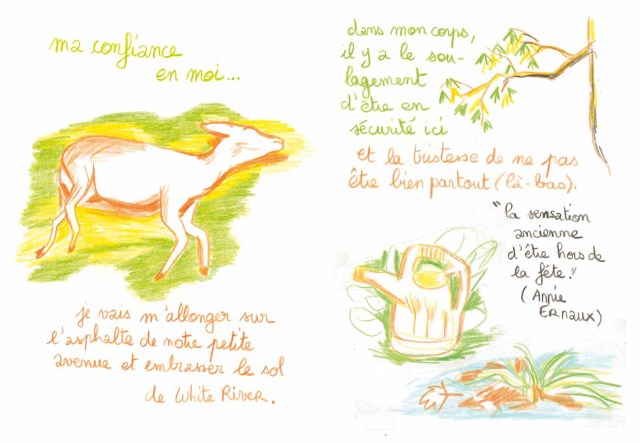 ma confiance
en moi...
je vais m'allonger sur
l'asphalte de notre petite
avenue et embrasser le sol
de White River.
dans mon corps,
il y a le sou-
lagement
d'être en
sécurité ici
et la tristesse de ne pas
être bien partout (là-bas).
"la sensation
ancienne
d'être hors de
la fête."
(Annie
ERNAUX)